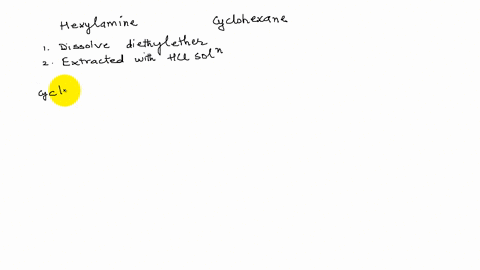 Hexylamine Cyclohexane
1. Dissolve diethylether
2. Extracted with HCl solⁿ
cycl